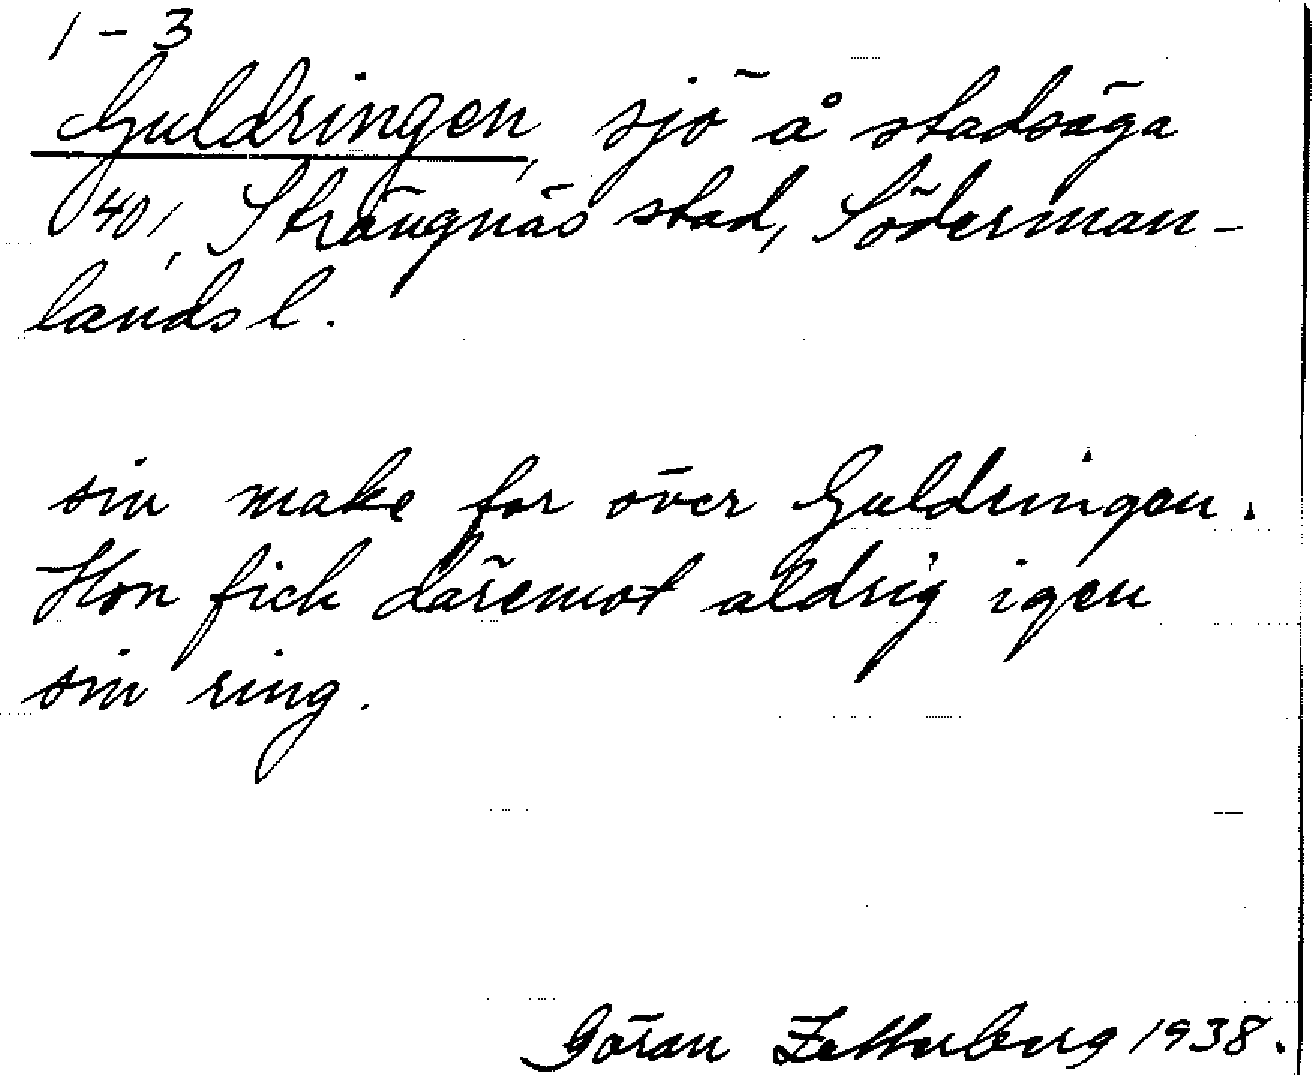 1-3
Guldringen, sjö å stadsäga
401, Strängnäs stad, Söderman-
lands l.
sin make for över Guldringen.
Hon fick däremot aldrig igen
sin ring.
Göran Zetterberg 1938.